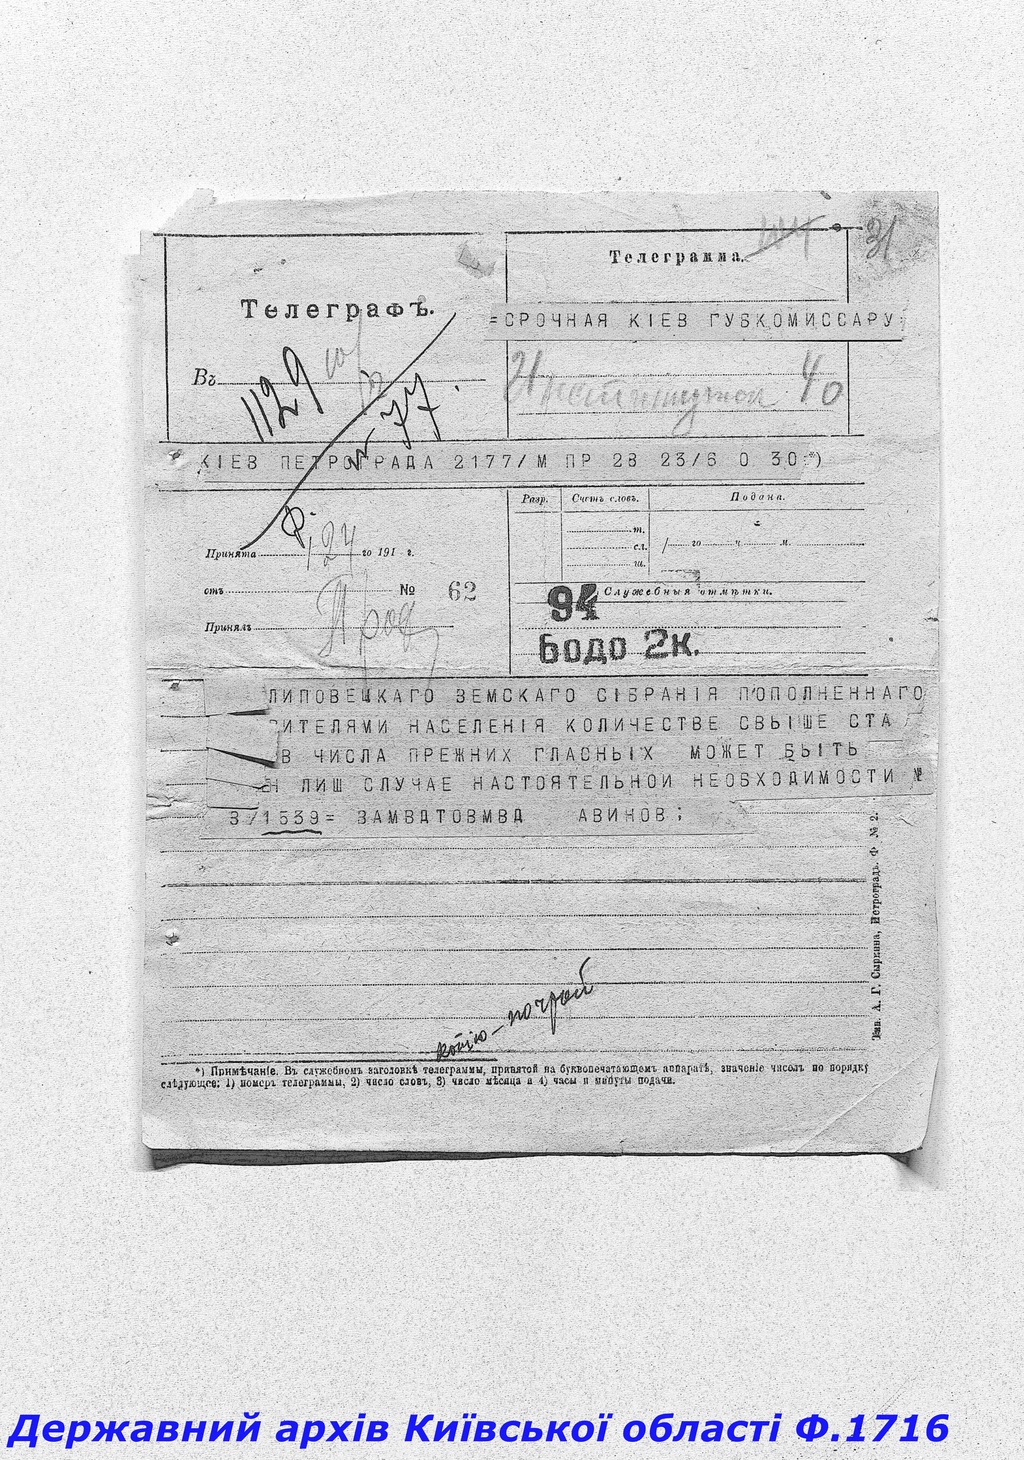 31
Телеграмма.
Телеграфъ.
=СРОЧНАЯ КІЕВ ГУБКОМИССАРУ=
Въ
1129
№ 77.
40
КІЕВ ПЕТРОГРАДА 2177/М ПР 28 23/6 0 30 *)
Разр. Счетъ словъ. Подана.
т.
сл.
ш.
го ч. м.
Принята 24 го 191 г.
отъ № 62
Принялъ
Служебныя отмѣтки.
94
Бодо 2к.
ЛИПОВЕЦКАГО ЗЕМСКАГО СІБРАНІЯ ПОПОЛНЕННАГО
ВИТЕЛЯМИ НАСЕЛЕНІЯ КОЛИЧЕСТВЕ СВЫШЕ СТА
В ЧИСЛА ПРЕЖНИХ ГЛАСНЫХ МОЖЕТ БЫТЬ
Н ЛИШ СЛУЧАЕ НАСТОЯТЕЛЬНОИ НЕОБХОДИМОСТИ №
3/1539= ЗАМВДТОВМВД АВИНОВ;
Тип. А. Г. Сыркина, Петроградъ. Ф. № 2.
копію – почтой
*) Примѣчаніе. Въ служебномъ заголовкѣ телеграммы, принятой на буквопечатающемъ аппаратѣ, значеніе чиселъ по порядку
слѣдующее: 1) номеръ телеграммы, 2) число словъ, 3) число мѣсяца и 4) часы и минуты подачи.
Державний архів Київської області Ф.1716